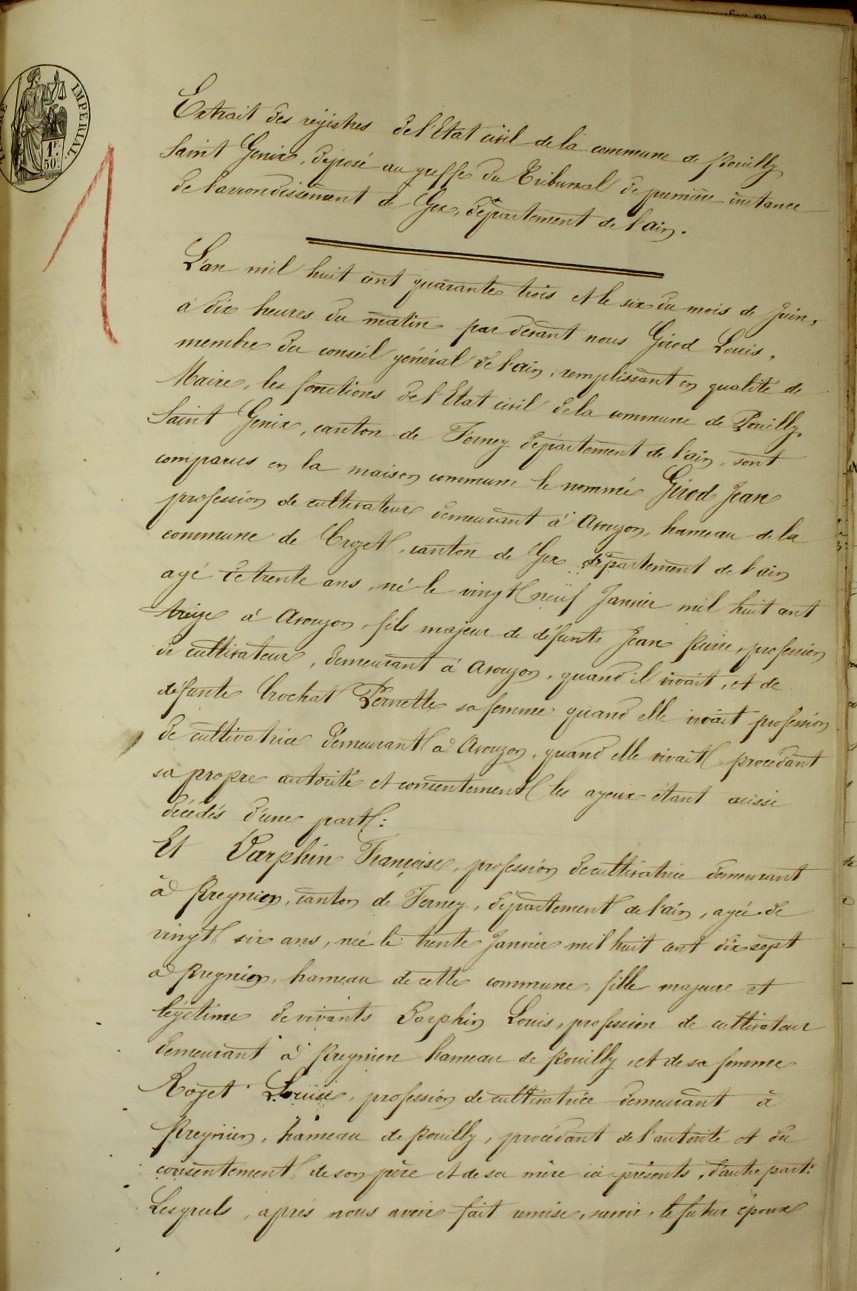 IMPERIAL.
1F.
50c
Extrait des registres de l'Etat civil de la commune de Pouilly
Saint Genix, déposé au greffe du Tribunal de première instance
de l'arrondissement de Gex, département de l'ain.
L'an mil huit cent quarante trois et le six du mois de Juin,
à dix heures du matin par devant nous Girod Louis,
membre du conseil général de l'ain, remplissant en qualité de
Maire, les fonctions de l'Etat civil de la commune de Pouilly
Saint Genix, canton de Ferney département de l'ain, sont
comparus en la maison commune le nommé Girod Jean
profession de cultivateur demeurant à Avouzon, hameau de la
commune de Crozet, canton de Gex, département de l'ain
agé de trente ans, né le vingt neuf Janvier mil huit cent
treize à Avouzon, fils majeur de défunts Jean Pierre, profession
de cultivateur, demeurant à Avouzon, quand il vivait, et de
défunte Crochat Pernette sa femme quand elle vivait profession
de cultivatrice demeurant à Avouzon, quand elle vivait procédant
sa propre autorité et consentement les ayeux étant aussi
décédés d'une part:
Et Darphin Françoise, profession de cultivatrice demeurant
à Pregnien, canton de Ferney, département de l'ain, agée de
vingt six ans, née le trente Janvier mil huit cent dix sept
à Pregnien, hameau de cette commune, fille majeure et
légitime de vivants Darphin Louis, profession de cultivateur
demeurant à Pregnien hameau de Pouilly, et de sa femme
Rojet Louise, profession de cultivatrice demeurant à
Pregnien, hameau de Pouilly, procédant de l'autorité et du
consentement de son père et de sa mère ici présents, d'autre part:
Lesquels, après nous avoir fait remise, savoir, le futur époux